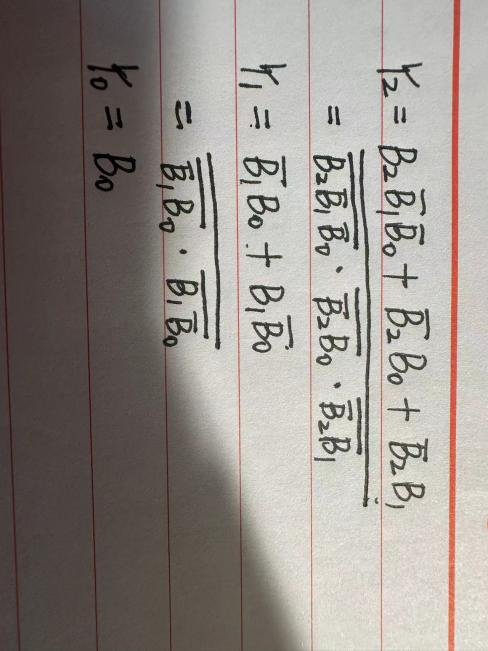 $Y_2 = B_2\bar{B}_1\bar{B}_0 + \bar{B}_2B_0 + \bar{B}_2B_1$
$= \overline{\overline{B_2\bar{B}_1\bar{B}_0} \cdot \overline{\bar{B}_2B_0} \cdot \overline{\bar{B}_2B_1}}$
$Y_1 = \bar{B}_1B_0 + B_1\bar{B}_0$
$= \overline{\overline{\bar{B}_1B_0} \cdot \overline{B_1\bar{B}_0}}$
$Y_0 = B_0$